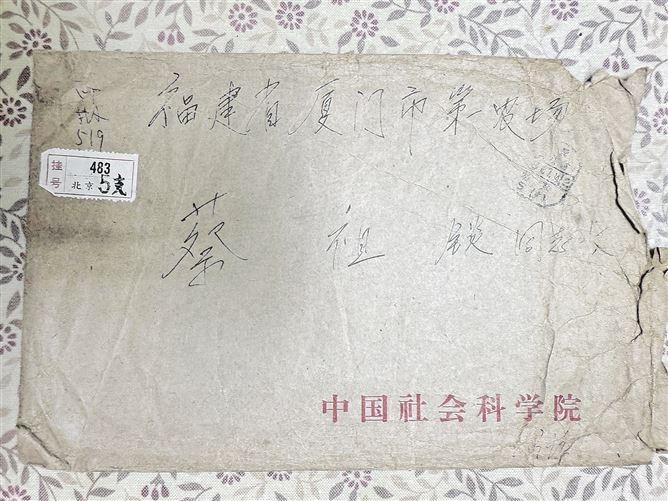 福建省厦门市第一农场
519
挂号
483
北京 5支
蔡祖 同志收
中国社会科学院